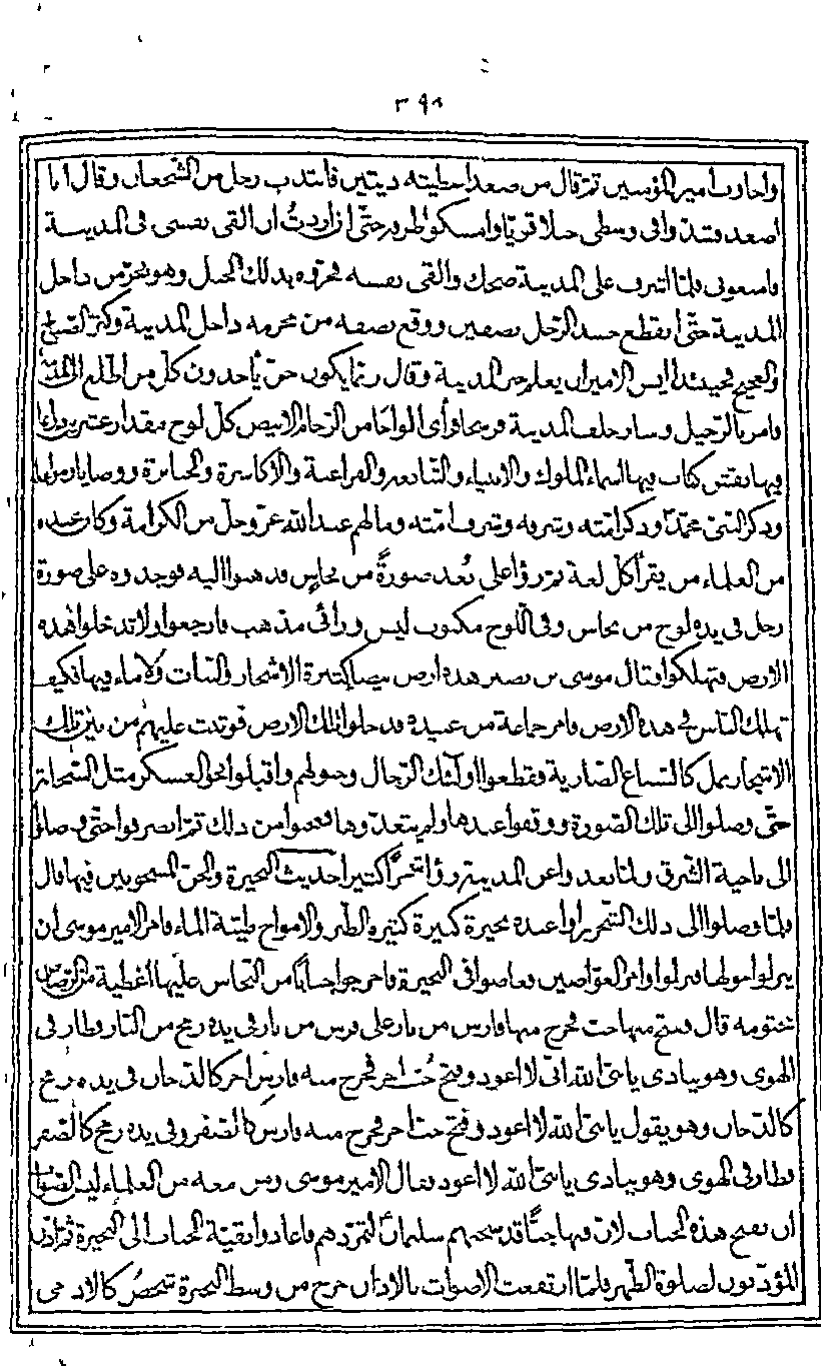 ٣٩٨
واخاوب امير المؤمنين ثم قال من صعد اعطيته ديتين فانتدب رجل من الشجعان وقال انا
اصعد فشدّ وافى وسطى حبلا قويّا وامسكوا طرفه حتّى ان اردتُ ان القى نفسى فى المدينة
فامنعونى فلمّا اشرف على المدينة ضحك والقى نفسه فجرّوه بذلك الحبل وهو يجرّ من داخل
المدينة حتّى انقطع جسد الرّجل نصفين ووقع نصفه من محزمه داخل المدينة وكثر الصّياح
والضجيج فحينئذ ايس الامير ان يعلم خبر المدينة وقال ربّما يكون جنّ يأخذون كلّ من اطّلع الى المدينة
فامر بالرّحيل وسار خلف المدينة فرسخا فرأى الواحًا من الرّخام الابيض كلّ لوح مقدار عشرين ذراعا
فيها نقش كتاب فيها اسماء الملوك والانبياء والتبابعة والفراعنة والاكاسرة والجبابرة ووصايا
وذكر النبىّ محمّد وذكر امّته وشرفه وشرف امّته وما لهم عند الله عزّ وجلّ من الكرامة وكان عنده
من العلماء من يقرأ كلّ لغة ثم رؤا على بُعد صورةً من نحاس فذهبوا اليه فوجدوه على صورة
رجل فى يده لوح من نحاس وفى اللّوح مكتوب ليس ورائى مذهب فارجعوا ولا تدخلوا هذه
الارض فتهلكوا فقال موسى بن نصير هذه ارض بيضا كثيرة الاشجار والنبات ولا ماء فيها فكيف
تهلك النّاس فى هذه الارض فامر جماعة من عبيده فدخلوا تلك الارض فوثبت عليهم من بين تلك
الاشجار نمل كالسّباع الضّارية فقطعوا اولئك الرّجال وخيولهم واقبلوا نحو العسكر مثل السّحابة
حتّى وصلوا الى تلك الصّورة ووقفوا عندها ولم يتعدّوها فعجبوا من ذلك ثمّ انصرفوا حتّى وصلوا
الى ناحية الشّرق ولمّا بعدوا عن المدينة رؤا شجرًا كثيرا حديث البحيرة والجنّ المسجونين فيها قال
فلمّا وصلوا الى ذلك الشّجر راوا عنده بحيرة كبيرة كثيره الطّير والامواج طيّبة الماء فامر الامير موسى ان
ينزلوا حولها فنزلوا وامر الغوّاصين فغاصوا فى البحيرة فاخرجوا حبابًا من النّحاس عليها اغطية من الرّصاص
مختومه قال ففتح منها حبّ فخرج منها فارس من نار على فرس من نار فى يده رمح من النّار فطار فى
الهوى وهو ينادى يا نبىّ الله انى لا اعود وفتح حُبّ اخر فخرج منه فارس اخر كالدّخان فى يده رمح
كالدّخان وهو يقول يا نبىّ الله لا اعود وفتح حبّ اخر فخرج منه فارس كالصّفر وفى يده رمح كالصّفر
فطار فى الهوى وهو ينادى يا نبىّ الله لا اعود فقال الامير موسى ومن معه من العلماء ليس الصّواب
ان نفتح هذه الحباب لانّ فيها جنًّا قد سجنهم سليمان لتمرّدهم فاعادوا بقيّة الحباب الى البحيرة ثمّ اذّن
المؤذّنون لصلوة الظّهر فلمّا ارتفعت الاصوات بالاذان خرج من وسط البحيرة شخصٌ كالآدمى